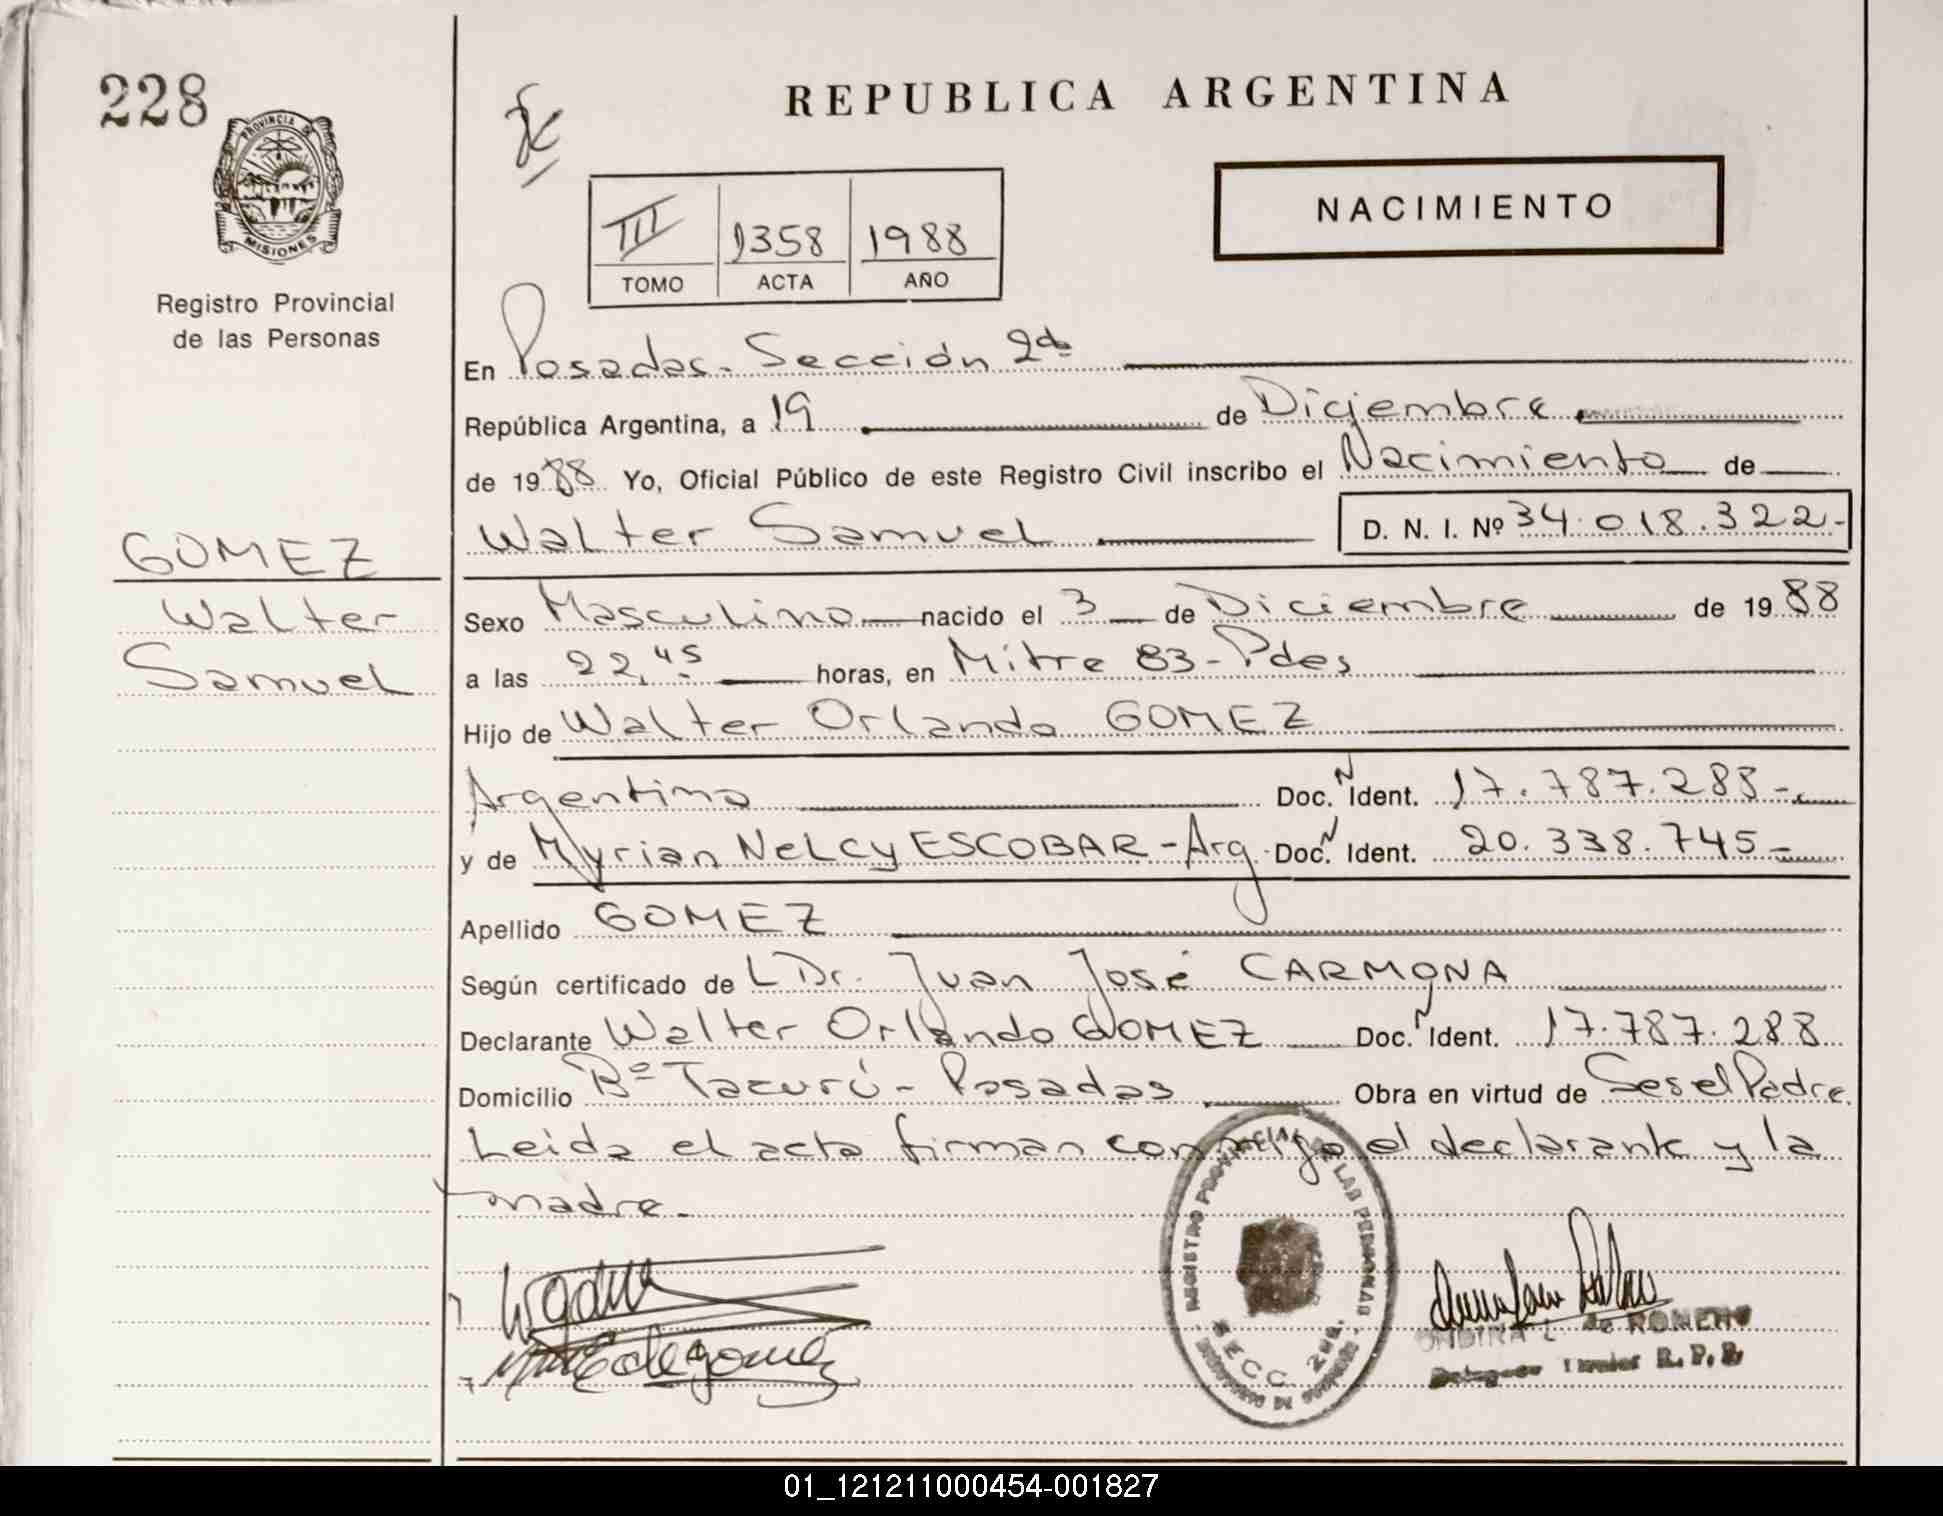 228
REPUBLICA ARGENTINA
PROVINCIA DE
MISIONES
Registro Provincial
de las Personas
III 1358 1988
TOMO ACTA AÑO
NACIMIENTO
En Posadas. Sección 2da
República Argentina, a 19 de Diciembre
de 1988 Yo, Oficial Público de este Registro Civil inscribo el Nacimiento de
Walter Samuel D. N. I. Nº 34.018.322-
GOMEZ
Walter
Samuel
Sexo Masculino nacido el 3 de Diciembre de 1988
a las 22,45 horas, en Mitre 83-Pdes
Hijo de Walter Orlando GOMEZ
Argentino Doc. N Ident. 17.787.288-
y de Myrian NeLcy ESCOBAR-Arg. Doc. N Ident. 20.338.745-
Apellido GOMEZ
Según certificado de L Dr. Juan José CARMONA
Declarante Walter Orlando GOMEZ Doc. N Ident. 17.787.288
Domicilio Bº Tacurú- Posadas Obra en virtud de Ses el Padre.
Leida el acta firman conmigo el declarante y la
madre.
REGISTRO PROVINCIAL DE LAS PERSONAS
SECC. 2da.
de
R. P. P.
01_121211000454-001827